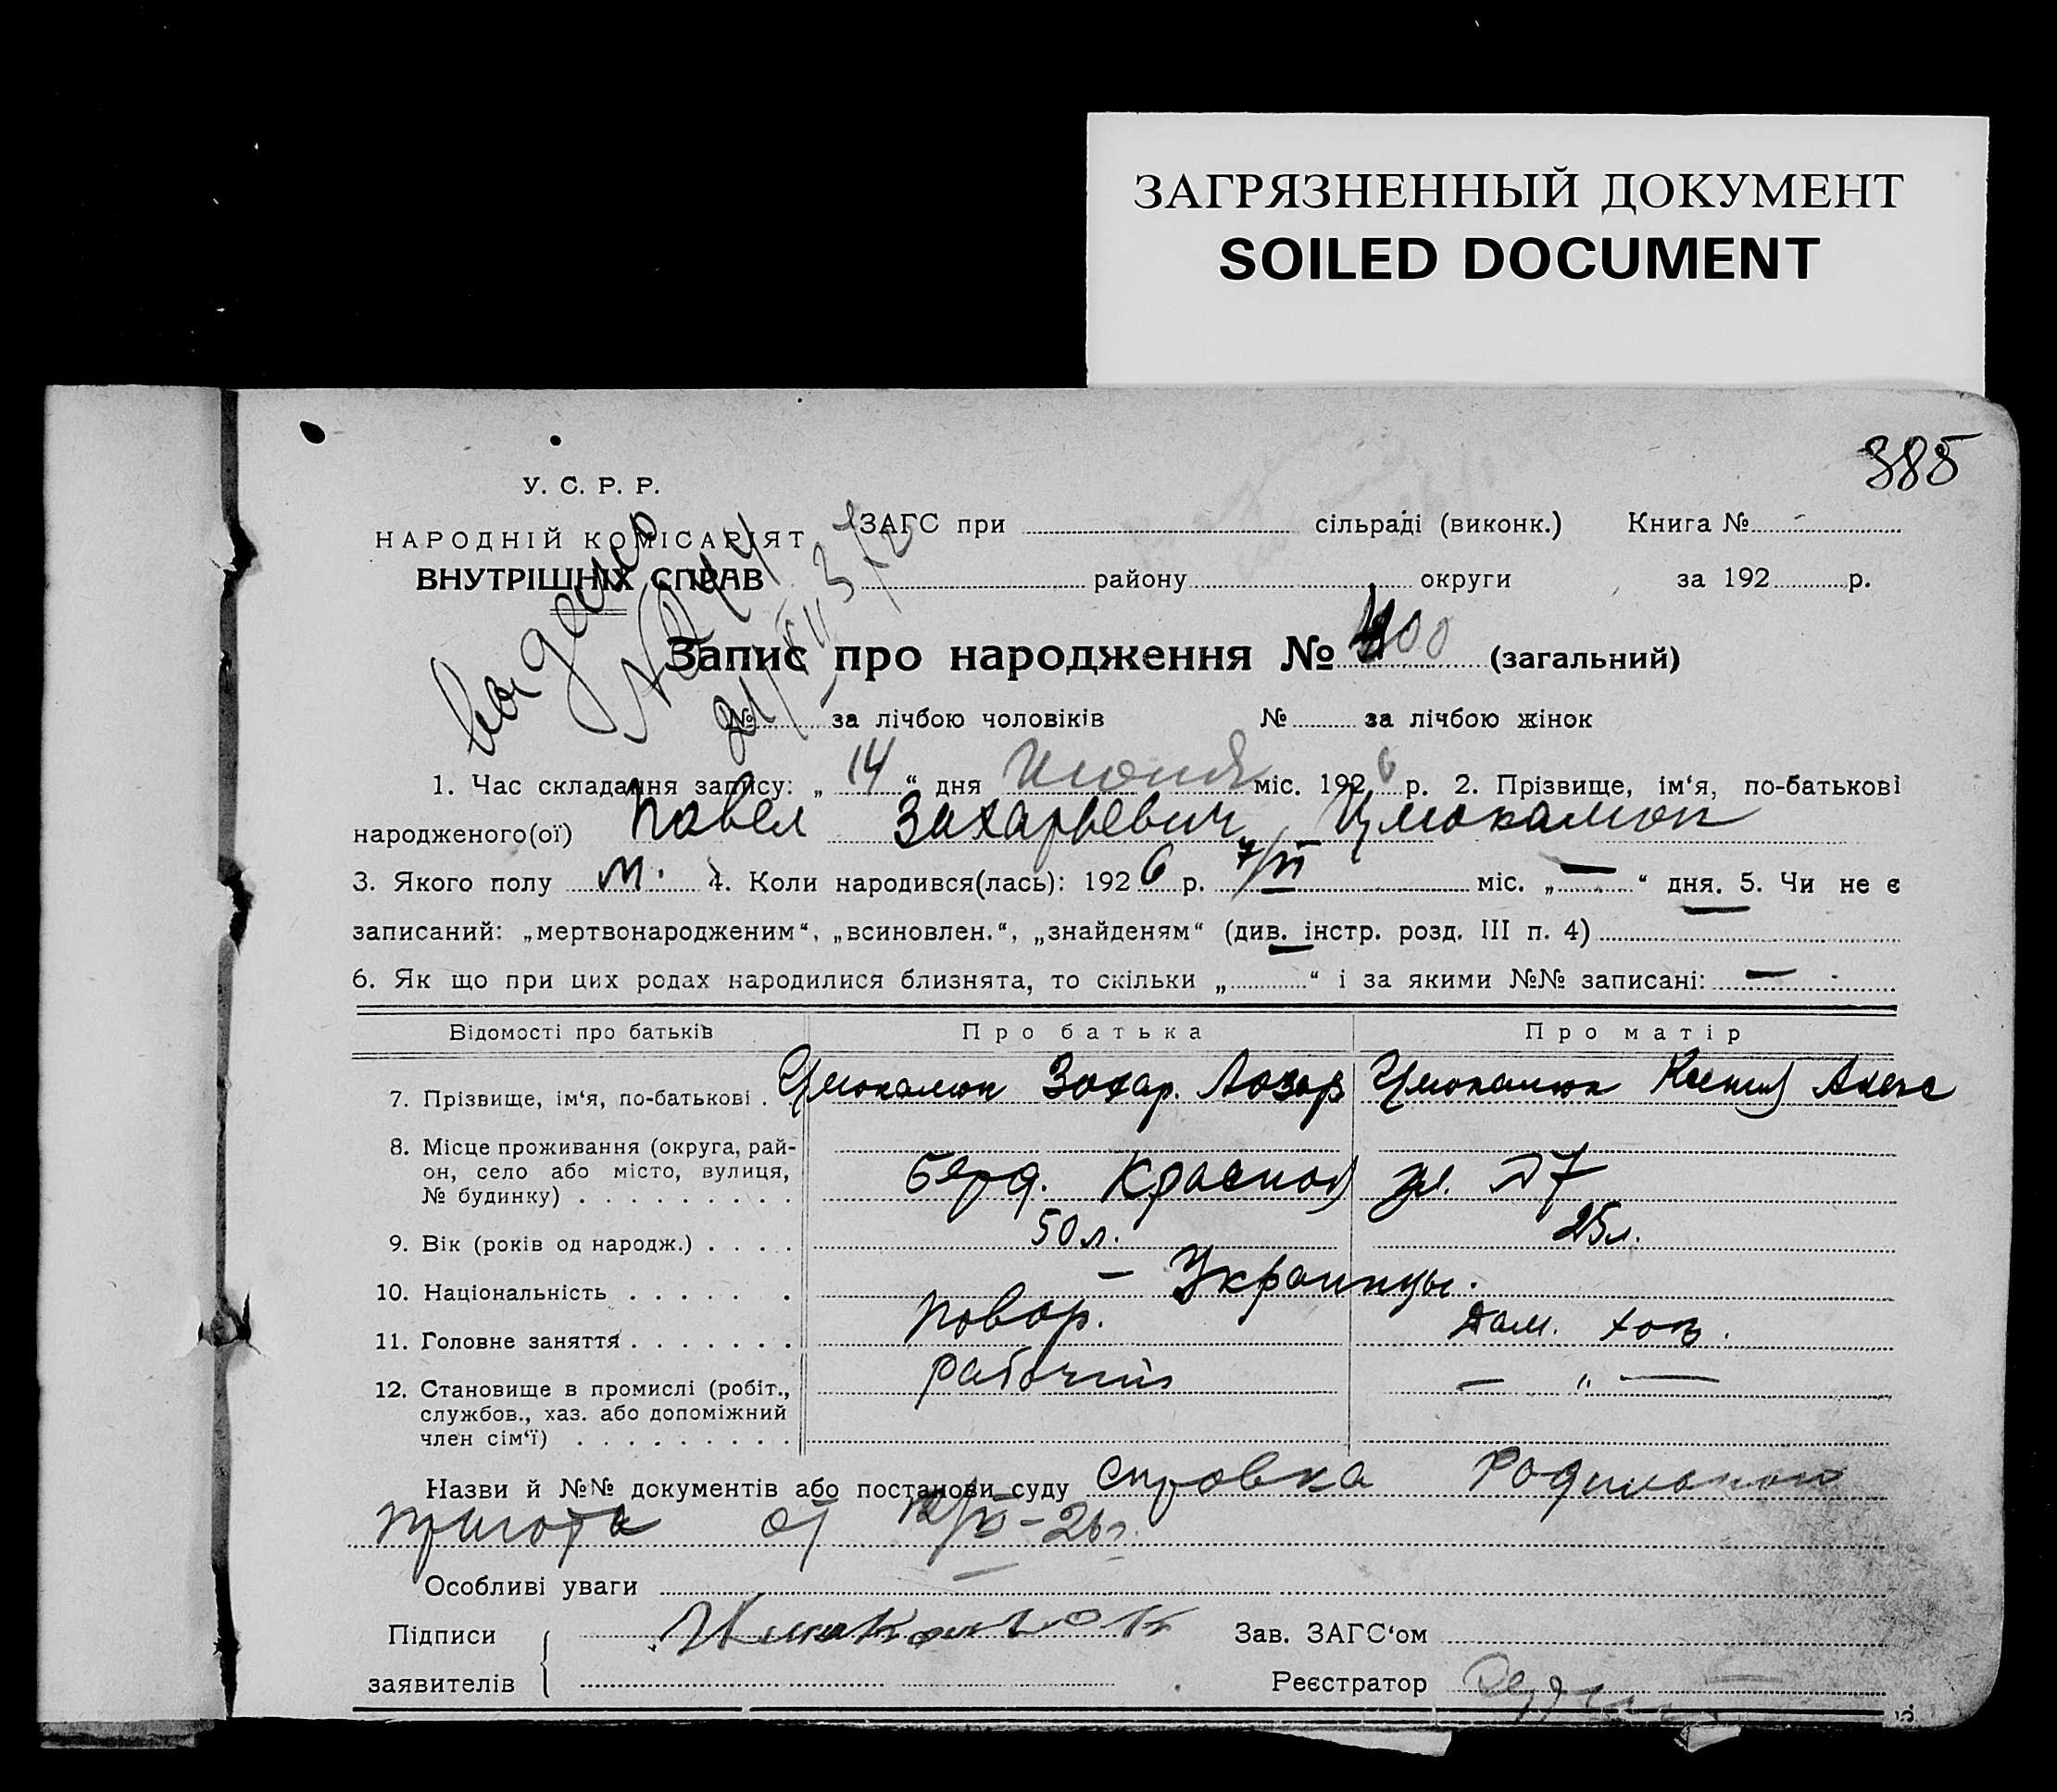 ЗАГРЯЗНЕННЫЙ ДОКУМЕНТ
SOILED DOCUMENT
385
У. С. Р. Р.
НАРОДНІЙ КОМІСАРІЯТ
ВНУТРІШНІХ СПРАВ
ЗАГС при сільраді (виконк.) Книга №
району округи за 192 р.
Запис про народження № 400 (загальний)
№ за лічбою чоловіків № за лічбою жінок
1. Час складання запису: „ 14 “ дня Июня міс. 1926 р. 2. Прізвище, ім‘я, по-батькові
народженого(ої) Павел Захарьевич Цмокалюк
3. Якого полу м. 4. Коли народився(лась): 1926 р. 7/VI міс. „ — “ дня. 5. Чи не є
записаний: „мертвонародженим“, „всиновлен.“, „знайденям“ (див. інстр. розд. III п. 4)
6. Як що при цих родах народилися близнята, то скільки „ “ і за якими №№ записані: —
Відомості про батьків Про батька Про матір
7. Прізвище, ім‘я, по-батькові . Цмокалюк Захар. Лазар Цмокалюк Ксения Алекс
8. Місце проживання (округа, рай-
он, село або місто, вулиця,
№ будинку) Берд. Красная ул. №7
9. Вік (років од народж.) 50 л. 25 л.
10. Національність — Украинцы.
11. Головне заняття Повар. дом. хоз.
12. Становище в промислі (робіт., рабочий — „ —
службов., хаз. або допоміжний
член сім‘ї)
Назви й №№ документів або постанови суду справка Родильного
приюта от 12/VI-26 г.
Особливі уваги
Підписи Цмокалюк Зав. ЗАГС‘ом
заявителів Реєстратор